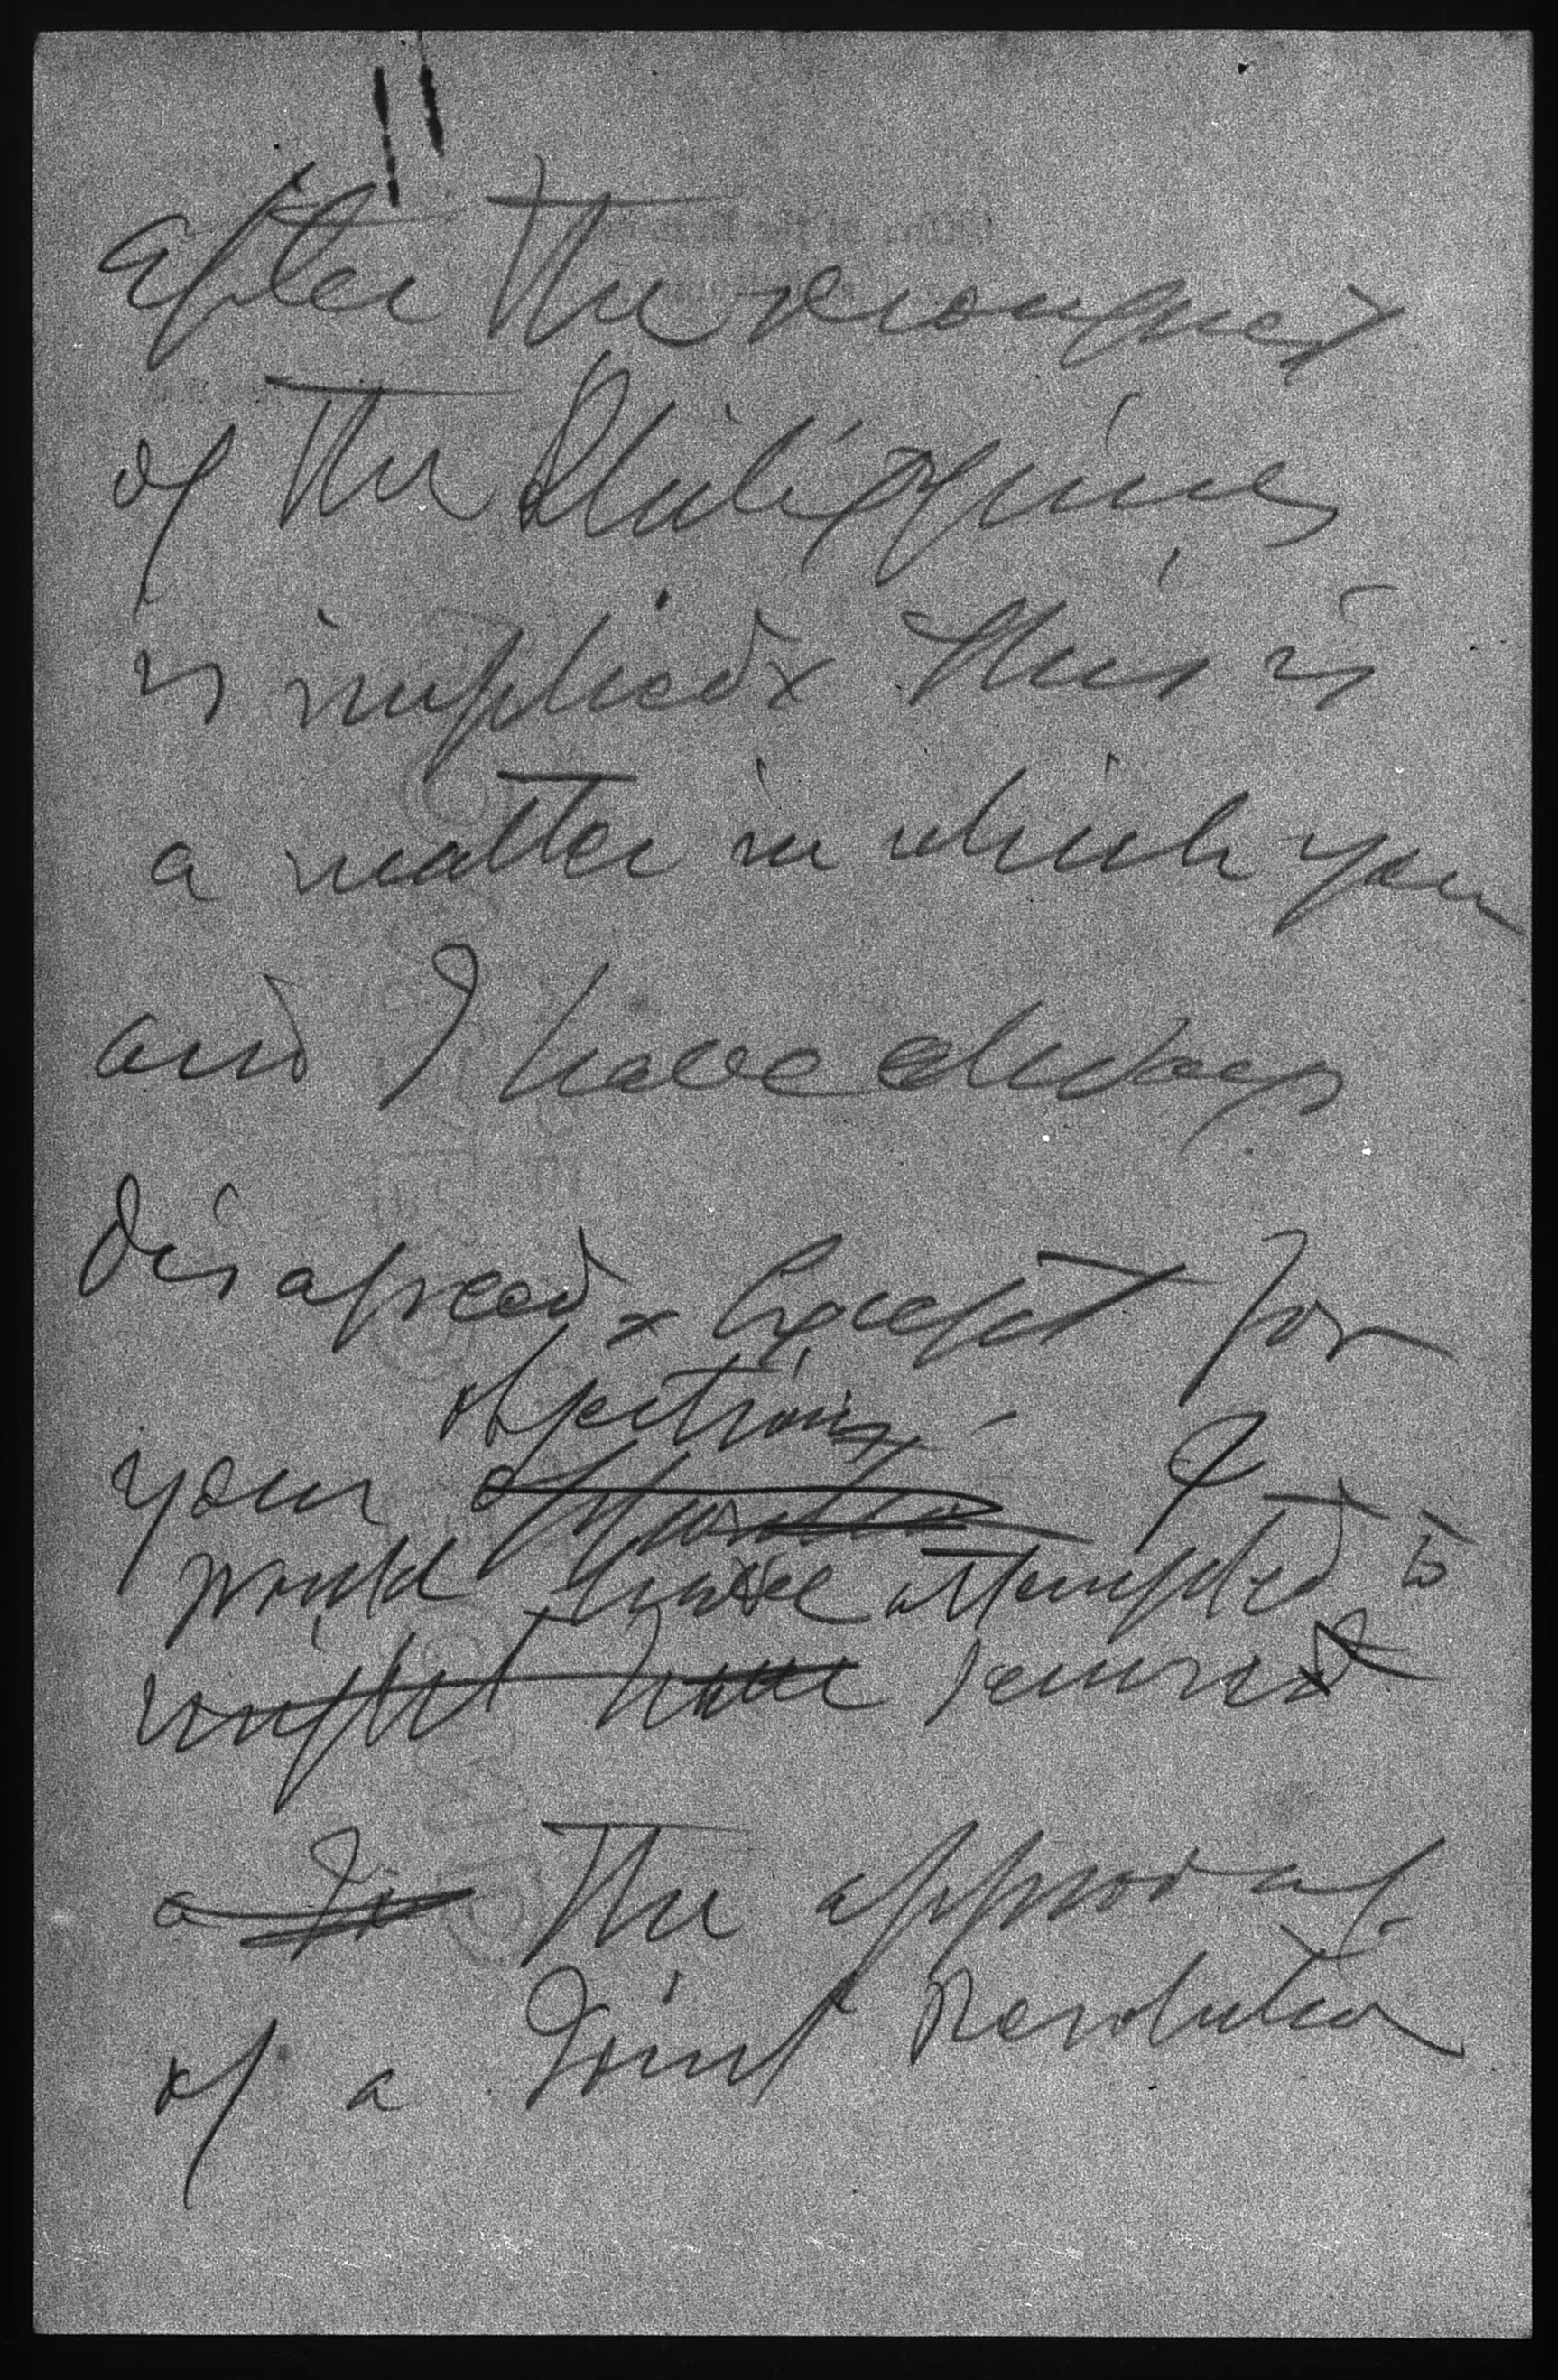 11
after the reconquest
of the Philippines
is implied x This is
a matter in which you
and I have always
disagreed x Except for
objections
your opposition I
would have attempted to
might have secured
a Jo the approval
of a Joint Resolution